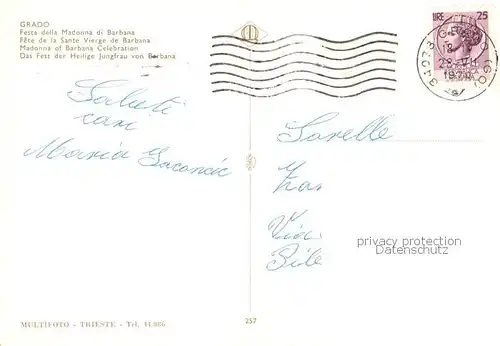 GRADO
Festa della Madonna di Barbana
Fête de la Sante Vierge de Barbana
Madonna of Barbana Celebration
Das Fest der Heilige Jungfrau von Barbana
LIRE 25
34073 G
18
1970
Saluti
cari
Maria
Sorelle
Via
privacy protection
MULTIFOTO - TRIESTE - Tel. 44.886
257